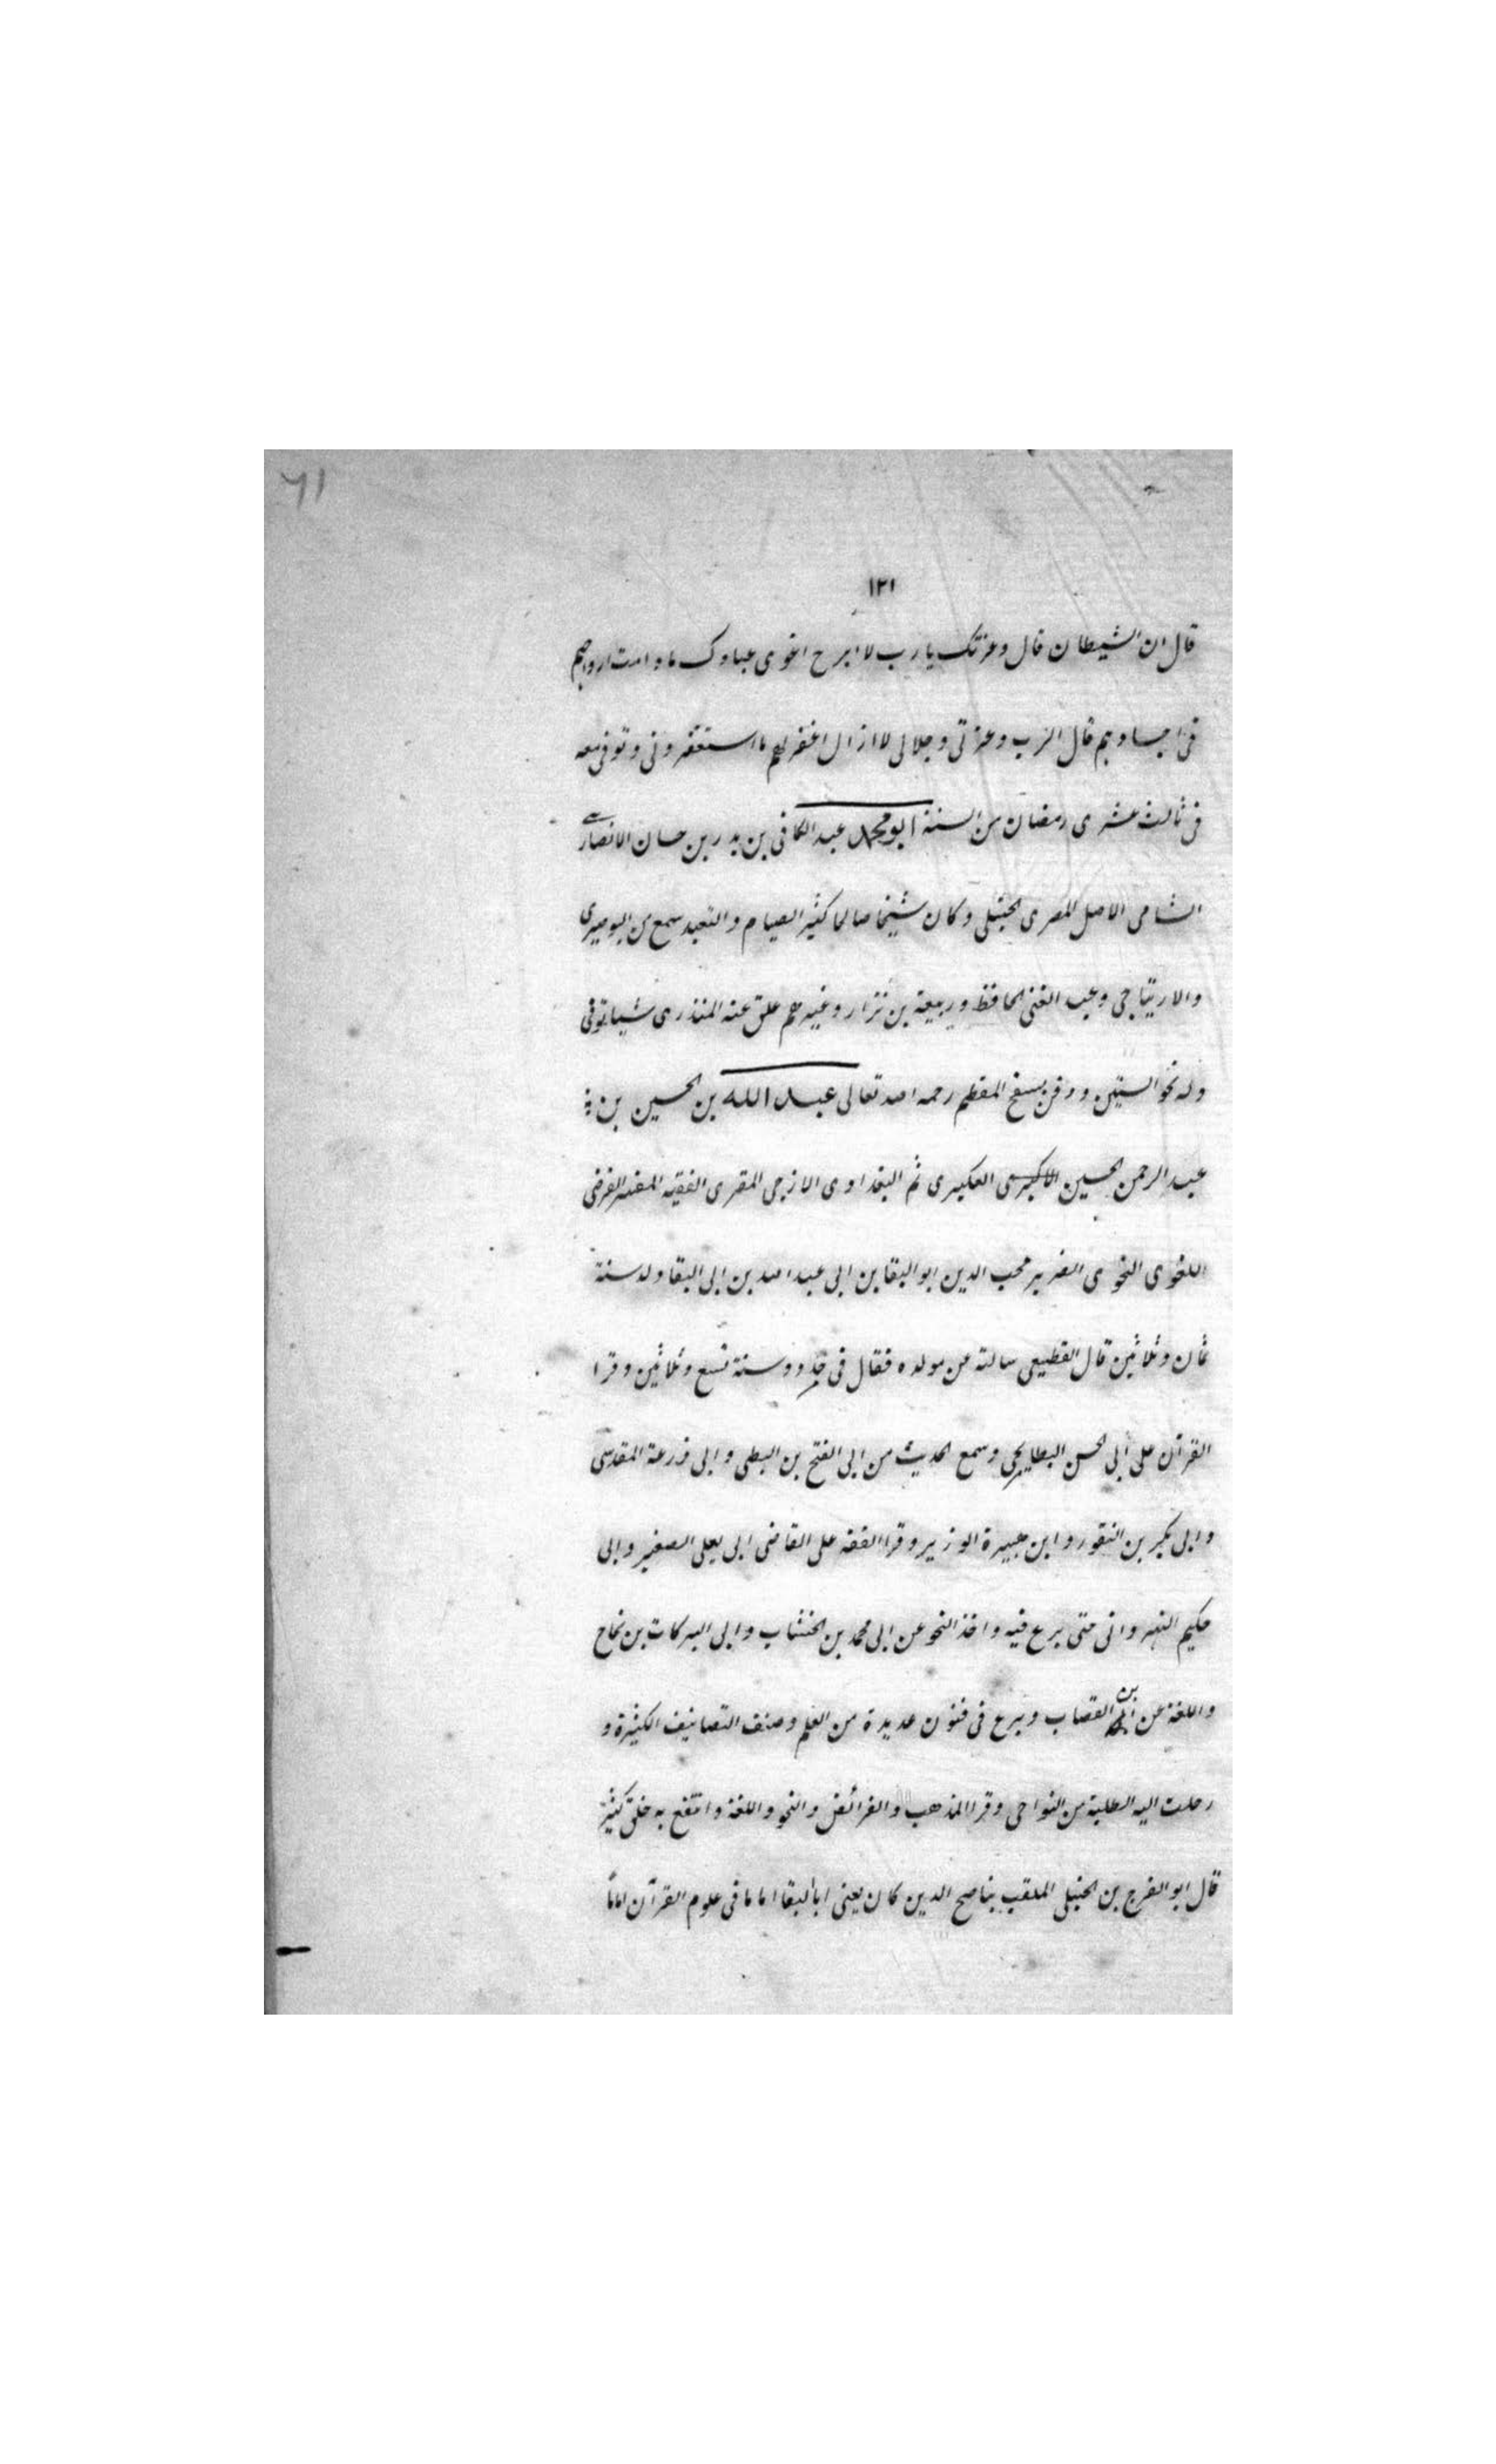 ٦١
١٢١
قال ان الشيطان قال وعزتك يا رب لا ابرح اغوى عبادك ما دامت ارواحهم
فى اجسادهم قال الرب وعزتى وجلالى لا ازال اغفر لهم ما استغفرونى وتوفى معه
فى ثالث عشرى رمضان من السنة ابو محمد عبد الكافى بن بدر بن حسان الانصارى
الشامى الاصل المصرى الحنبلى وكان شيخا صالحا كثير الصيام والتعبد سمع من البوصيرى
والارتياحى وعبد الغنى الحافظ وربيعة بن نزار وغيرهم علق عنه المنذرى شيا توفى
وله نحو الستين ودفن بسفح المقطم رحمه الله تعالى عبد الله بن الحسين بن
عبد الرحمن الحسين العكبرى ثم البغدادى الازجى المقرى الفقيه المفسر الفرضى
اللغوى النحوى الضرير محب الدين ابو البقا بن ابى عبد الله بن ابى البقا ولد سنة
ثمان وثلاثين قال القطيعى سالته عن مولده فقال فى حدود سنة تسع وثلاثين وقرا
القرآن على ابى الحسن البطايحى وسمع الحديث من ابى الفتح بن البطى وابى زرعة المقدسى
وابى بكر بن النقور وابن هبيرة الوزير وقرا الفقه على القاضى ابى يعلى الصغير وابى
حكيم النهروانى حتى برع فيه واخذ النحو عن ابى محمد بن الخشاب وابى البركات بن نجاح
واللغة عن بن القصاب وبرع فى فنون عديدة من العلم وصنف التصانيف الكثيرة و
رحلت اليه الطلبة من النواحى وقرا المذهب والفرائض والنحو واللغة وانتفع به خلق كثير
قال ابو الفرج بن الحنبلى الملقب بناصح الدين كان يعنى ابا البقا اماما فى علوم القرآن اماما